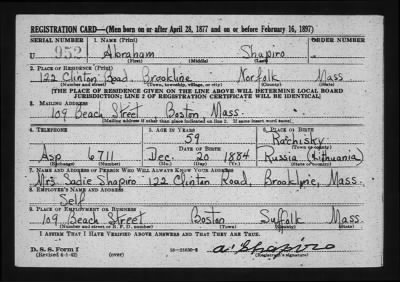 REGISTRATION CARD—(Men born on or after April 28, 1877 and on or before February 16, 1897)
SERIAL NUMBER 1. NAME (Print) ORDER NUMBER
U 952 Abraham Shapiro
(First) (Middle) (Last)
2. PLACE OF RESIDENCE (Print)
122 Clinton Road, Brookline Norfolk Mass.
(Number and street) (Town, township, village, or city) (County) (State)
[THE PLACE OF RESIDENCE GIVEN ON THE LINE ABOVE WILL DETERMINE LOCAL BOARD
JURISDICTION; LINE 2 OF REGISTRATION CERTIFICATE WILL BE IDENTICAL]
3. MAILING ADDRESS
109 Beach Street Boston, Mass.
[Mailing address if other than place indicated on line 2. If same insert word same]
4. TELEPHONE 5. AGE IN YEARS 6. PLACE OF BIRTH
59 Rachisky
DATE OF BIRTH (Town or county)
Asp 6711 Dec. 20 1884 Russia (Lithuania)
(Exchange) (Number) (Mo.) (Day) (Yr.) (State or country)
7. NAME AND ADDRESS OF PERSON WHO WILL ALWAYS KNOW YOUR ADDRESS
Mrs. Sadie Shapiro 122 Clinton Road, Brooklyne, Mass.
8. EMPLOYER'S NAME AND ADDRESS
Self
9. PLACE OF EMPLOYMENT OR BUSINESS
109 Beach Street Boston Suffolk Mass.
(Number and street or R. F. D. number) (Town) (County) (State)
I AFFIRM THAT I HAVE VERIFIED ABOVE ANSWERS AND THAT THEY ARE TRUE.
D. S. S. Form 1
(Revised 4-1-42) (over) a. Shapiro
(Registrant's signature)